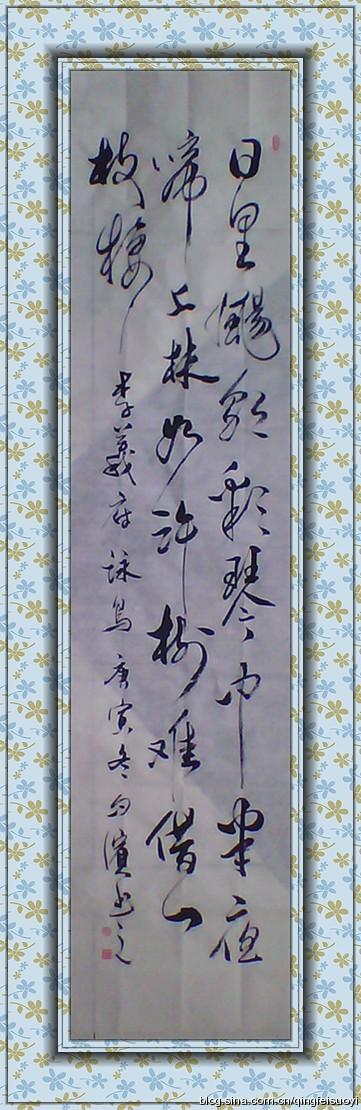 日里颺朝彩琴中半夜
啼上林如许樹难借一
枝棲
李義府詠鳥 庚寅冬 濱書之
blog.sina.com.cn/qingfeisuoyi